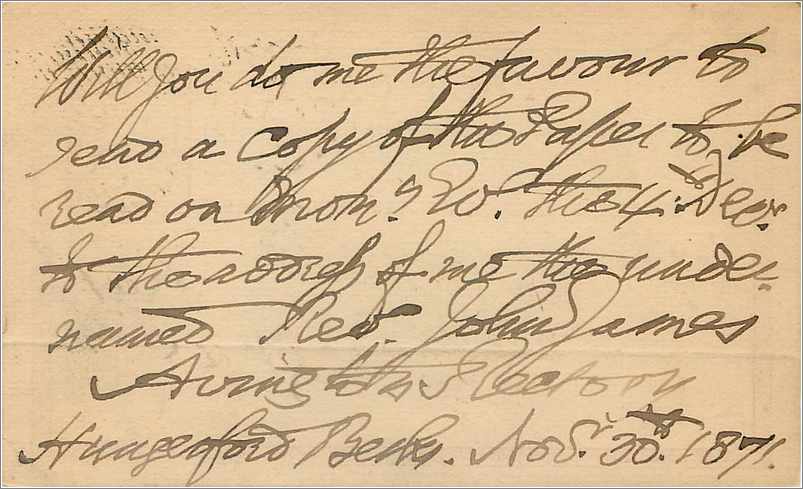 Will you do me the favour to
send a copy of the Paper to be
read on Mon. Ev. the 4th Decr.
to the address of me the under
named Rev. John James
Avington Rectory
Hungerford Berks. Novr. 30th. 1871.